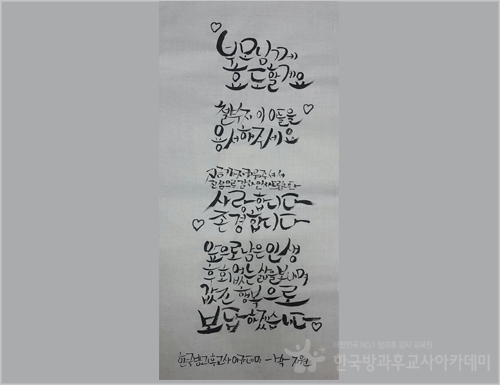 부모님께
효도할게요
철부지 이 아들을
용서하세요
사랑합니다
존경합니다
앞으로 남은 인생
후회없는 삶을 보내며
값진 행복으로
보답하겠습니다
한국방과후교사아카데미
한국방과후교사아카데미